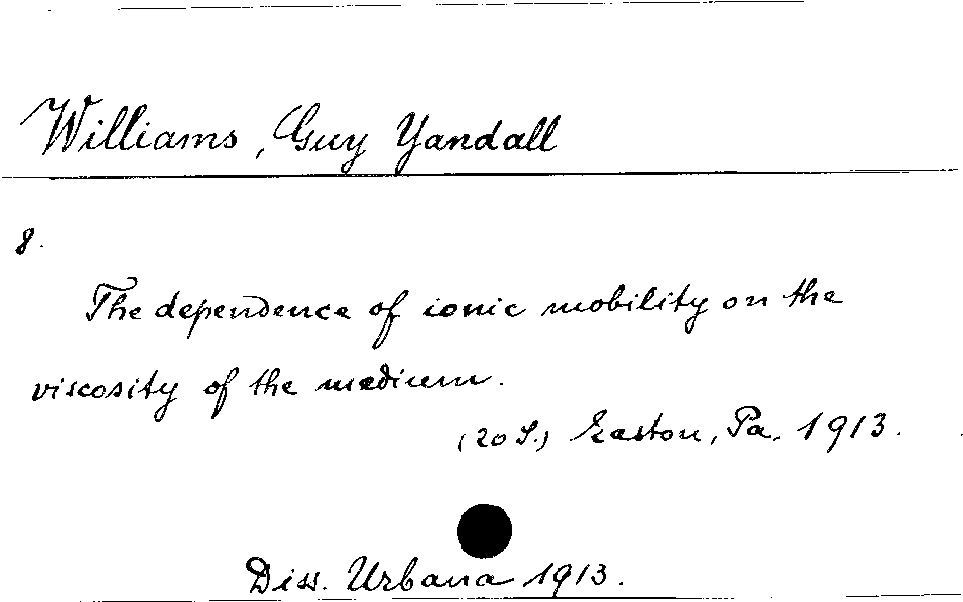 Williams, Guy Yandall
8.
The dependence of ionic mobility on the
viscosity of the medium.
(20 S.) Easton, Pa. 1913.
Diss. Urbana 1913.